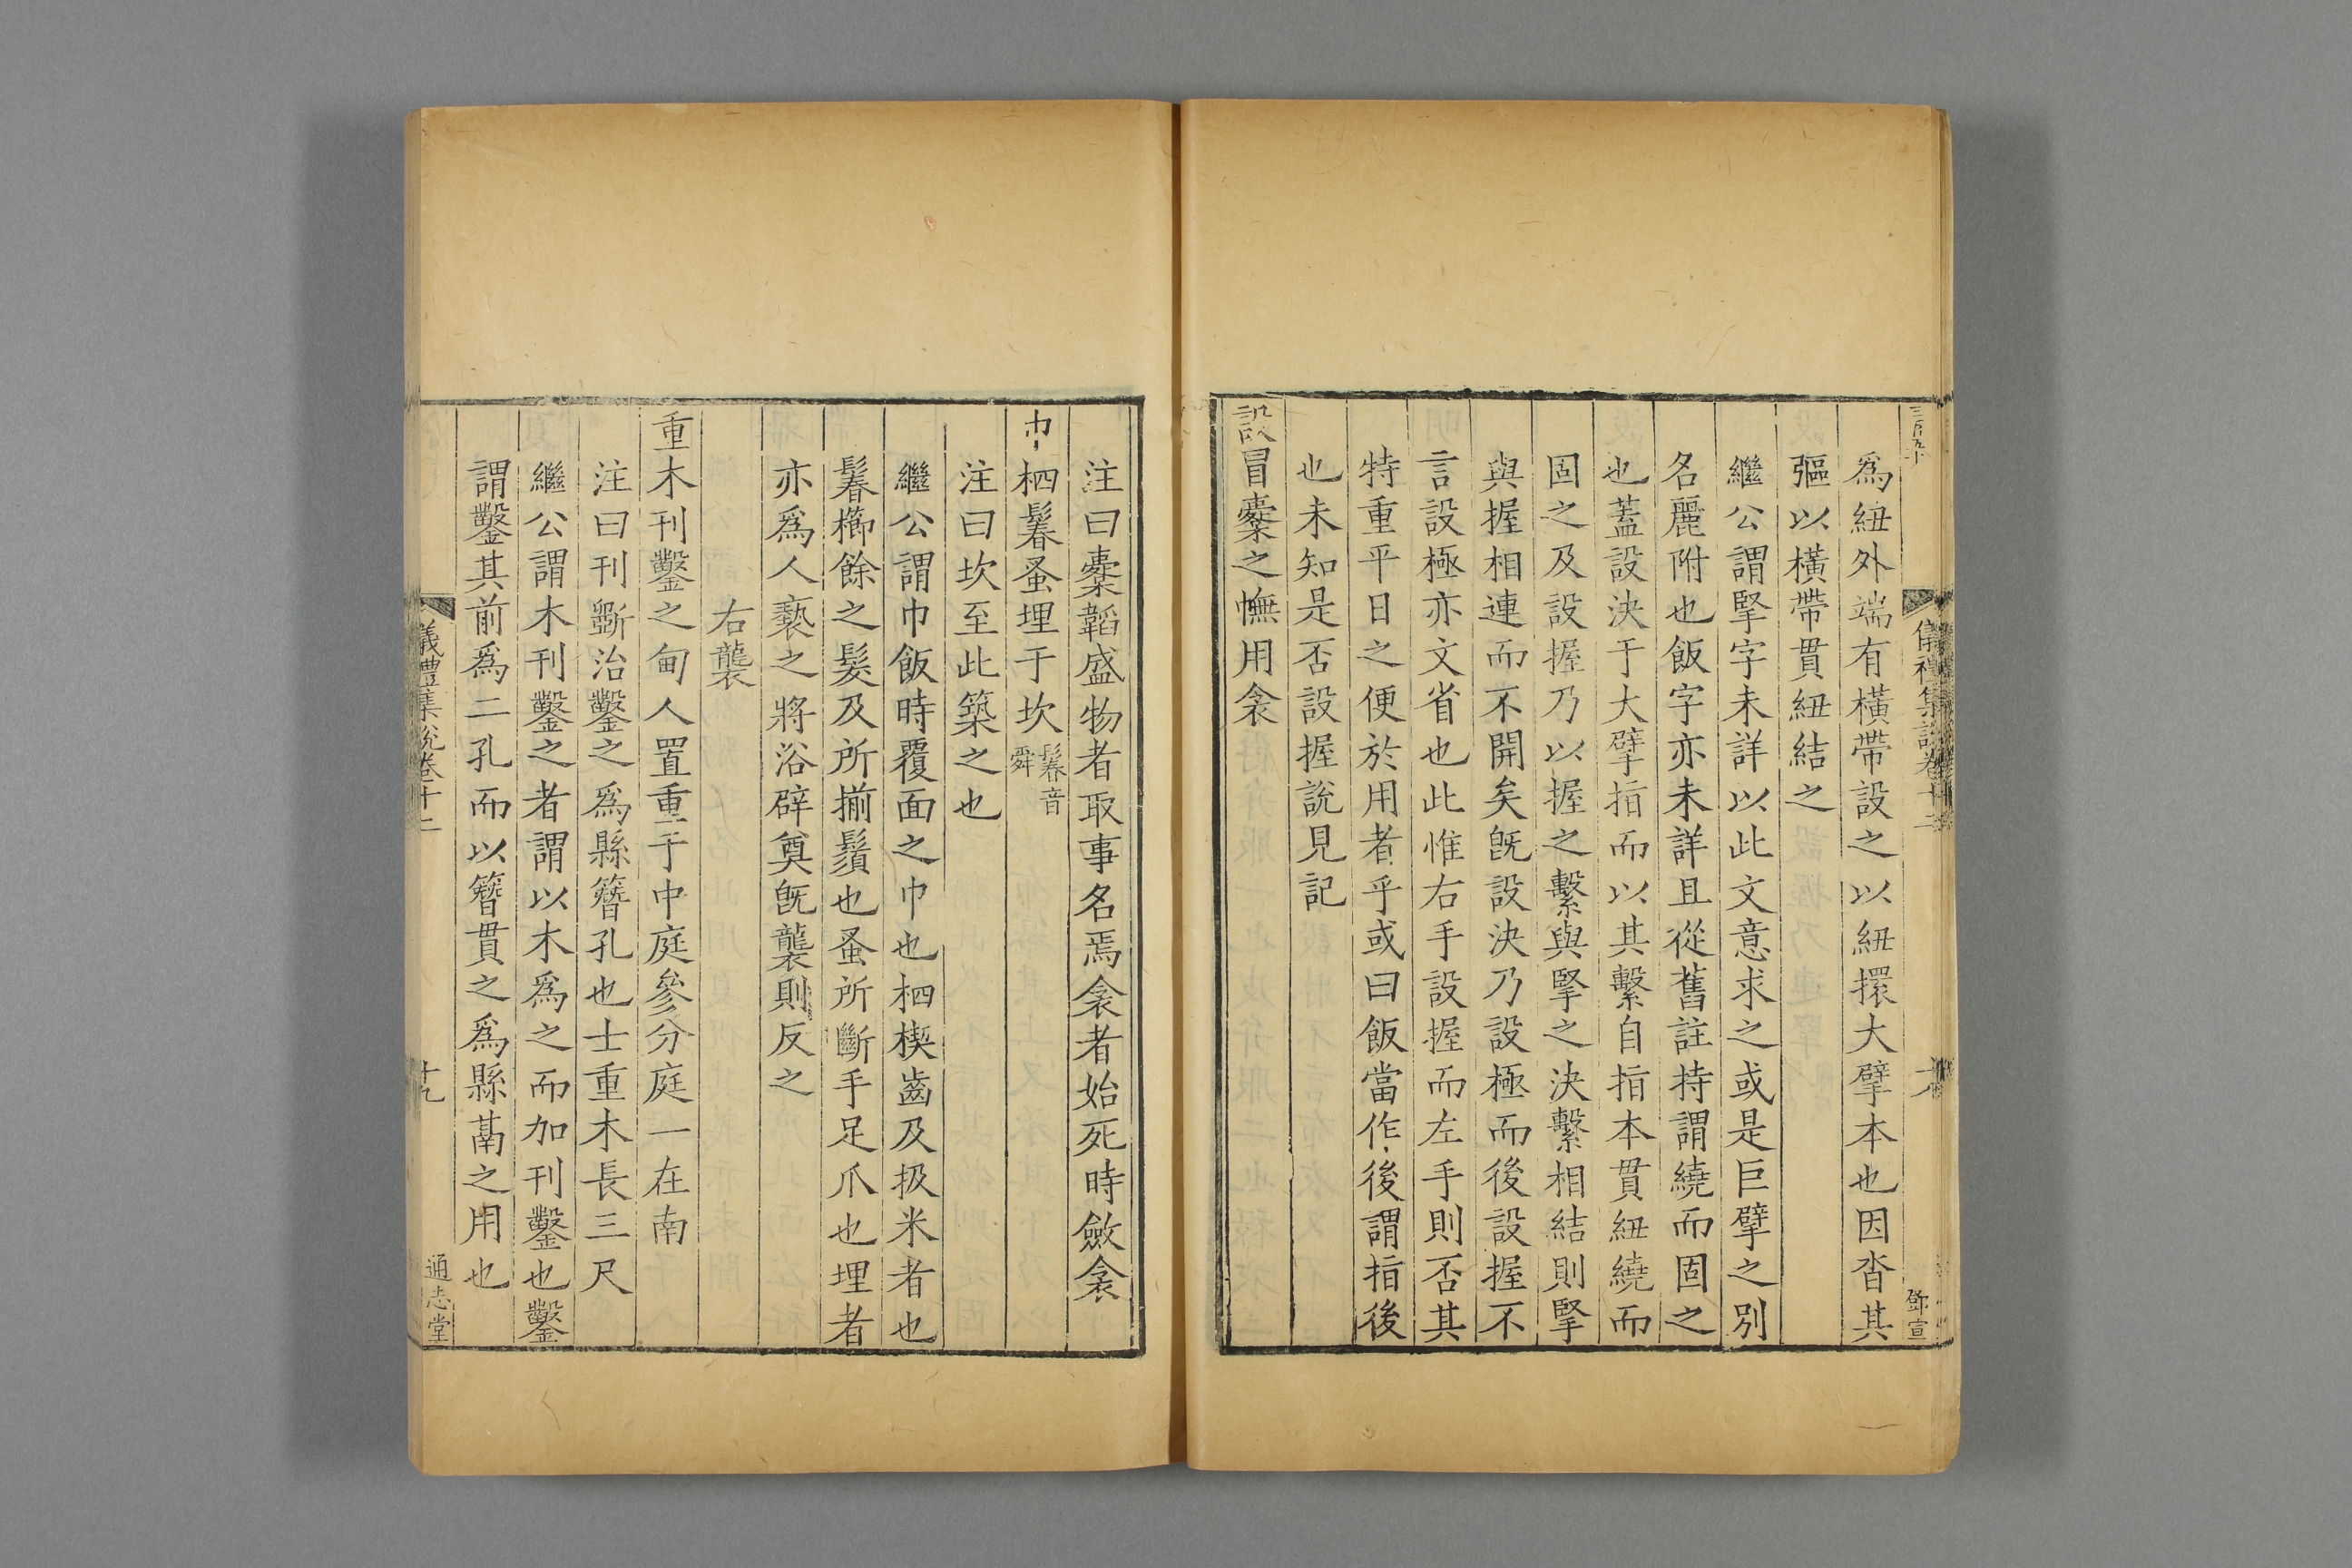 爲紐外端有橫帶設之以紐擐大擘本也因沓其
彄以橫帶貫紐結之
繼公謂掔字未詳以此文意求之或是巨擘之別
名麗附也飯字亦未詳且從舊註持謂繞而固之
也蓋設決于大擘指而以其繫自指本貫紐繞而
固之及設握乃以握之繫與掔之決繫相結則掔
與握相連而不開矣旣設決乃設極而後設握不
言設極亦文省也此惟右手設握而左手則否其
特重平日之便於用者乎或曰飯當作後謂指後
也未知是否設握說見記
設冒櫜之幠用衾
儀禮集說卷十二
鄧宣
注曰櫜韜盛物者取事名焉衾者始死時斂衾
巾柶鬊蚤埋于坎鬊音舜
注曰坎至此築之也
繼公謂巾飯時覆面之巾也柶楔齒及扱米者也
鬊櫛餘之髮及所揃鬚也蚤所斷手足爪也埋者
亦爲人褻之將浴辟奠旣襲則反之
右襲
重木刊鑿之甸人置重于中庭參分庭一在南
注曰刊斲治鑿之爲縣簪孔也士重木長三尺
繼公謂木刊鑿之者謂以木爲之而加刊鑿也鑿
謂鑿其前爲二孔而以簪貫之爲縣鬲之用也
儀禮集說卷十二
十九
通志堂